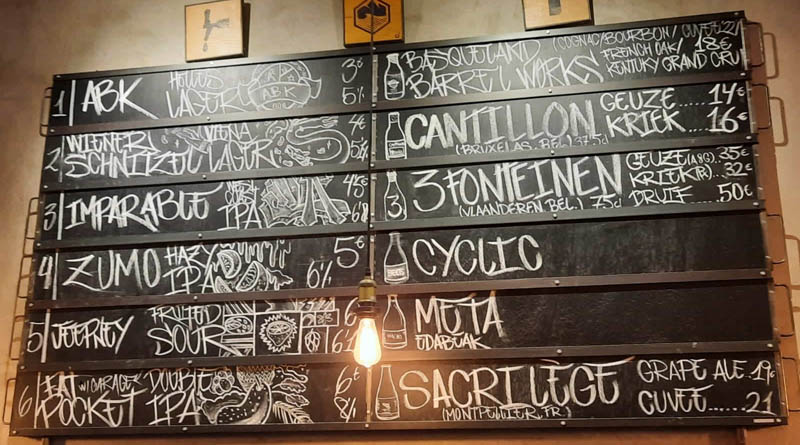 1 ABK HELLES LAGER 3€ 5%
ABK
2 WIENER SCHNITZEL VIENA LAGER 4€
3 IMPARABLE WEST COAST IPA
4 ZUMO HAZY IPA 5€ 6%
5 JEEPNEY FRUITED SOUR
6 FAT POCKET W/GARAGE DOUBLE IPA 6€ 8%
BASQUELAND BARREL WORKS (COGNAC/BOURBON/
FRENCH OAK/ 18€
KENTUCKY GRAND CRU
CANTILLON GEUZE.....14€
KRIEK....16€
(BRUXELAS, BEL.) 37.5cl
3 FONTEINEN GEUZE 35€
KRIEK 32€
DRUIF 50€
(VLAANDEREN BEL.) 75cl
CYCLIC
META
EDABEAK
SACRILEGE GRAPE ALE.19€
CUVEE......21
(MONTPELLIER, FR.)